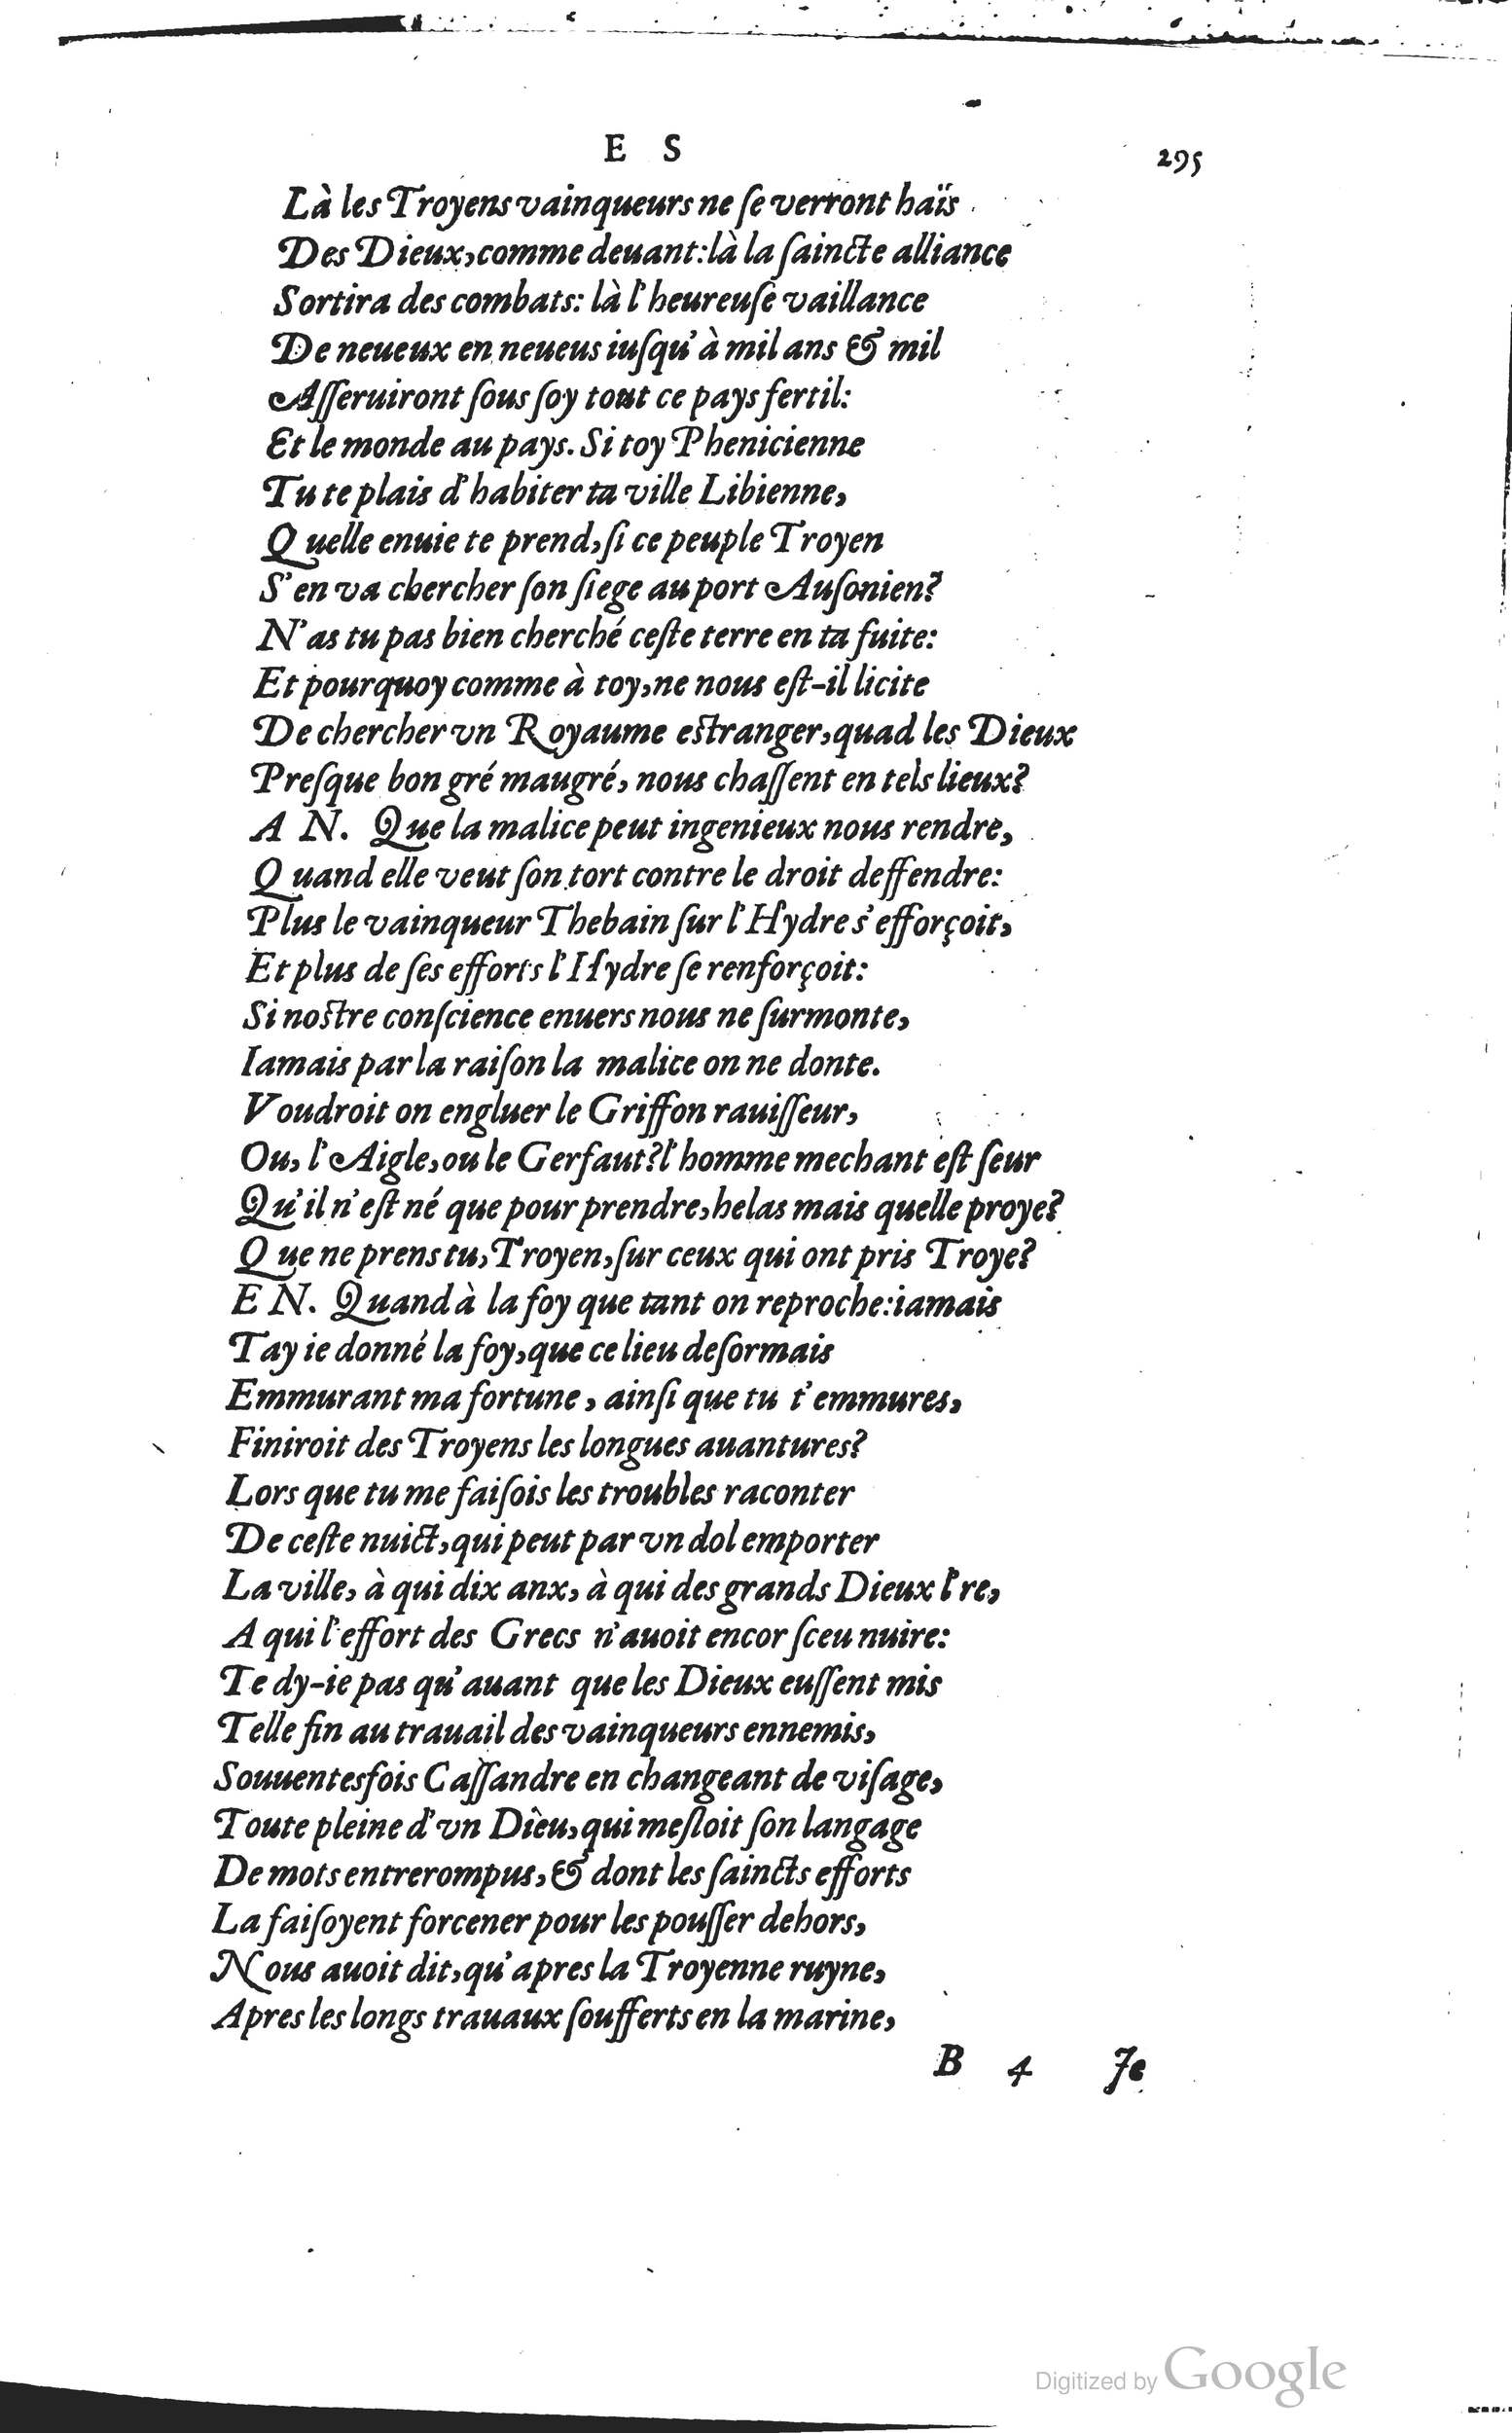 E S 295
Là les Troyens vainqueurs ne ſe verront haïs
Des Dieux, comme deuant: là la ſaincte alliance
Sortira des combats: là l'heureuſe vaillance
De neueux en neueus iuſqu'à mil ans & mil
Aſſeruiront ſous ſoy tout ce pays fertil:
Et le monde au pays. Si toy Phenicienne
Tu te plais d'habiter ta ville Libienne,
Quelle enuie te prend, ſi ce peuple Troyen
S'en va chercher ſon ſiege au port Auſonien?
N'as tu pas bien cherché ceſte terre en ta fuite:
Et pourquoy comme à toy, ne nous eſt-il licite
De chercher vn Royaume eſtranger, quad les Dieux
Preſque bon gré maugré, nous chaſſent en tels lieux?
A N. Que la malice peut ingenieux nous rendre,
Quand elle veut ſon tort contre le droit deffendre:
Plus le vainqueur Thebain ſur l'Hydre s'efforçoit,
Et plus de ſes efforts l'Hydre ſe renforçoit:
Si noſtre conſcience enuers nous ne ſurmonte,
Iamais par la raiſon la malice on ne donte.
Voudroit on engluer le Griffon rauiſſeur,
Ou, l'Aigle, ou le Gerfaut? l'homme mechant eſt ſeur
Qu'il n'eſt né que pour prendre, helas mais quelle proye?
Que ne prens tu, Troyen, ſur ceux qui ont pris Troye?
E N. Quand à la foy que tant on reproche: iamais
T'ay ie donné la foy, que ce lieu deſormais
Emmurant ma fortune, ainſi que tu t'emmures,
Finiroit des Troyens les longues auantures?
Lors que tu me faiſois les troubles raconter
De ceſte nuict, qui peut par vn dol emporter
La ville, à qui dix anx, à qui des grands Dieux l're,
A qui l'effort des Grecs n'auoit encor ſceu nuire:
Te dy-ie pas qu'auant que les Dieux euſſent mis
Telle fin au trauail des vainqueurs ennemis,
Souuentesfois Caſſandre en changeant de viſage,
Toute pleine d'vn Dieu, qui meſloit ſon langage
De mots entrerompus, & dont les ſaincts efforts
La faiſoyent forcener pour les pouſſer dehors,
Nous auoit dit, qu'apres la Troyenne ruyne,
Apres les longs trauaux ſoufferts en la marine,
B 4 Je
Digitized by Google